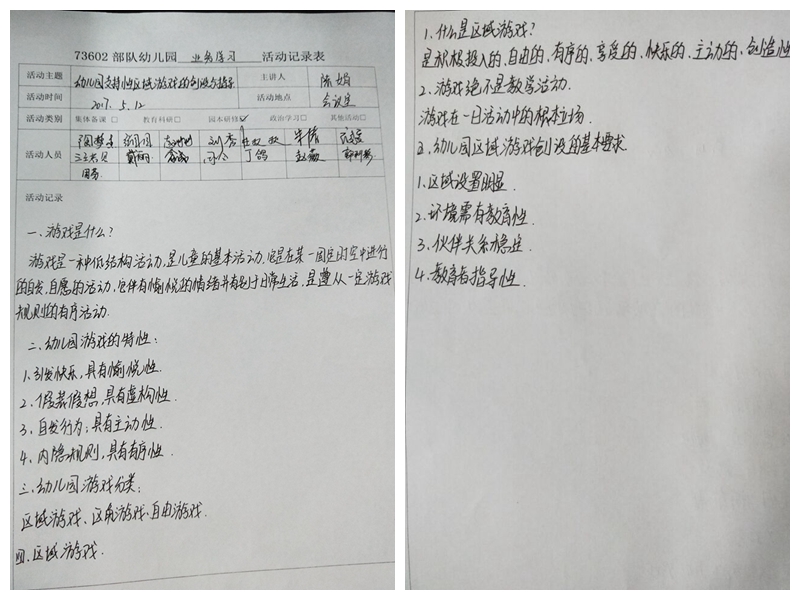 73602 部队幼儿园 业务学习 活动记录表
活动主题 幼儿园支持性区域游戏的创设与指导 主讲人 陈娟
活动时间 2017.5.12 活动地点 会议室
活动类别 集体备课□ 教育科研□ 园本研修☑ 政治学习□ 其他活动□
活动人员
戴丽 丁鸽
活动记录
一、游戏是什么？
游戏是一种低结构活动，是儿童的基本活动，它是在某一固定时空中进行
的自发、自愿的活动，它伴有愉悦的情绪并有别于日常生活，是遵从一定游戏
规则的有序活动。
二、幼儿园游戏的特性：
1、引发快乐，具有愉悦性．
2、假装假想，具有虚构性．
3、自发行为；具有主动性．
4、内隐规则，具有有序性．
三、幼儿园游戏分类：
区域游戏、区角游戏、自由游戏．
四、区域游戏．
1、什么是区域游戏？
是积极投入的、自由的、有序的、享受的、快乐的、主动的、创造性
2、游戏绝不是教学活动．
游戏在一日活动中的根本立场．
3、幼儿园区域游戏创设的基本要求．
1、区域设置明显．
2、环境需有教育性．
3、伙伴关系稳定．
4、教育者指导性．